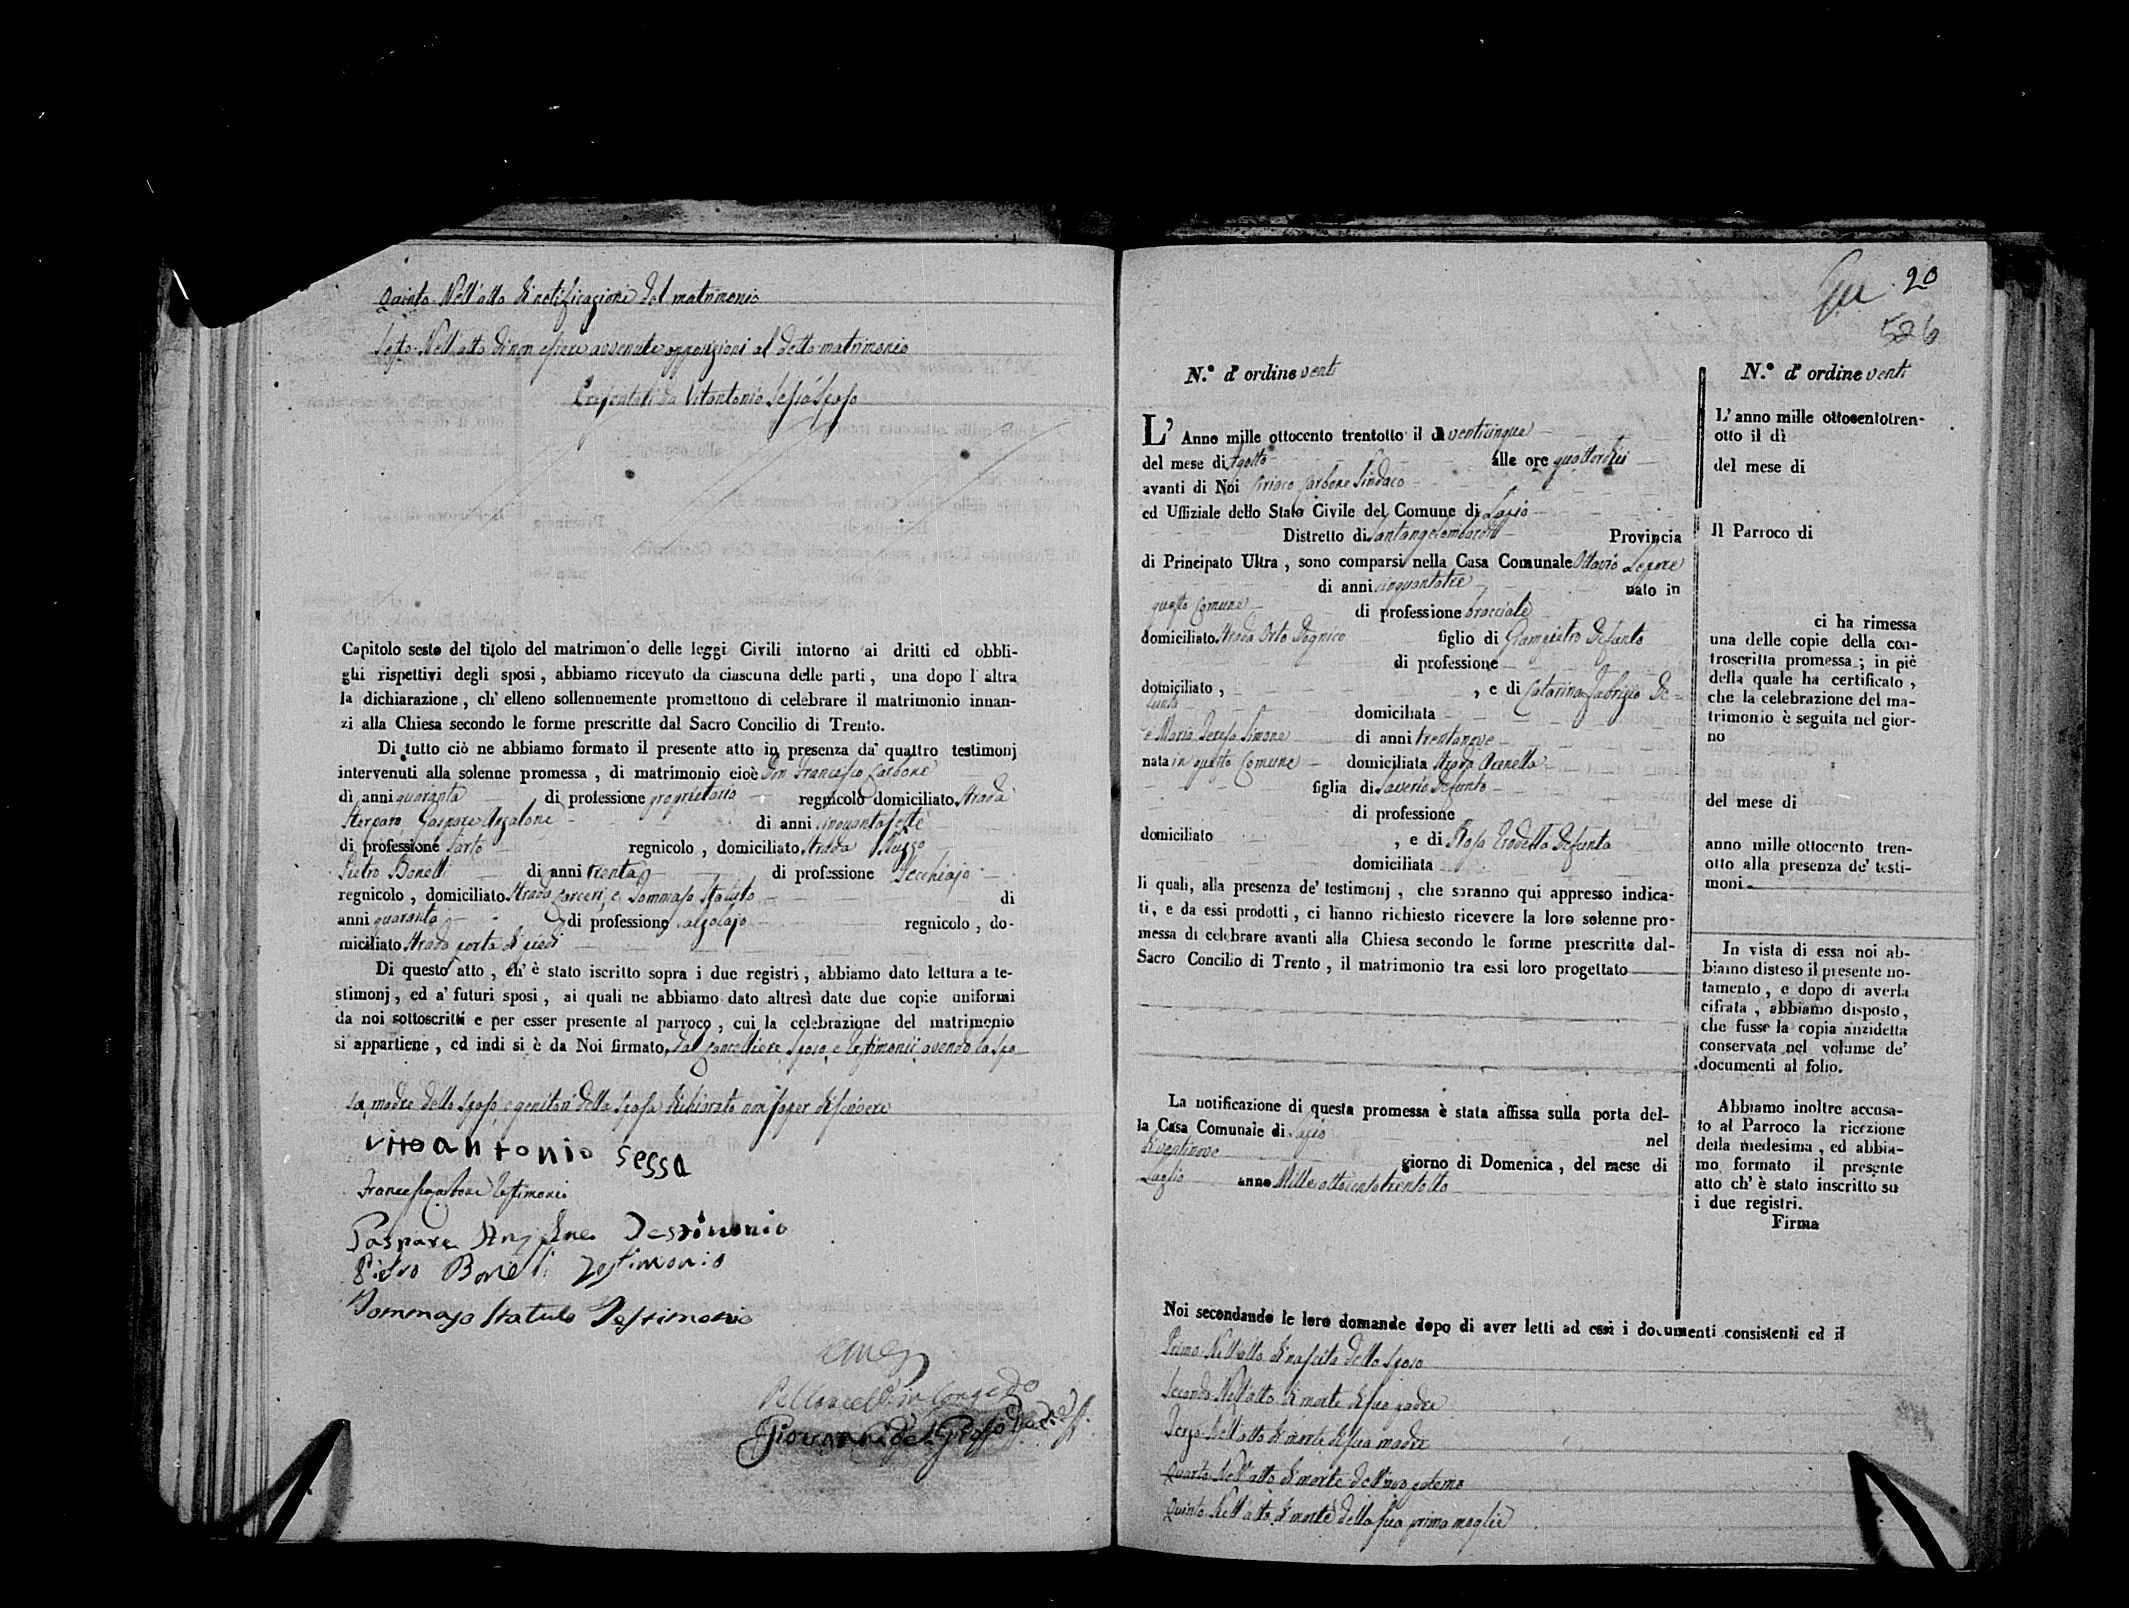 Quinto Nell'atto di notificazione del matrimonio
Sesto Nell'atto di non essere avvenute opposizioni al detto matrimonio
Presentati da Vitantonio Sessa Sposo
Capitolo sesto del titolo del matrimonio delle leggi Civili intorno ai dritti ed obbli-
ghi rispettivi degli sposi, abbiamo ricevuto da ciascuna delle parti, una dopo l'altra
la dichiarazione, ch'elleno sollennemente promettono di celebrare il matrimonio innan-
zi alla Chiesa secondo le forme prescritte dal Sacro Concilio di Trento.
Di tutto ciò ne abbiamo formato il presente atto in presenza da' quattro testimonj
intervenuti alla solenne promessa, di matrimonio cioè Don Francesco Carbone
di anni quaranta di professione proprietario regnicolo domiciliato Strada
Sterparo, Gaspare Anzalone di anni cinquantasette
di professione sarto regnicolo, domiciliato Strada
Pietro Bonelli di anni trenta di professione Secchiajo
regnicolo, domiciliato Strada Carceri, e Tommaso Statuto di
anni quaranta di professione calzolajo regnicolo, do-
miciliato Strada porta di piedi
Di questo atto, ch'è stato iscritto sopra i due registri, abbiamo dato lettura a te-
stimonj, ed a' futuri sposi, ai quali ne abbiamo dato altresì date due copie uniformi
da noi sottoscritti e per esser presente al parroco, cui la celebrazione del matrimonio
si appartiene, ed indi si è da Noi firmato, dal Cancelliere Sposo, e testimonii avendo la Spo
sa, madre dello Sposo, e genitori della Sposa dichiarato non saper scrivere
vitoantonio sessa
Francesco Carbone testimonio
Gaspare Anzalone Testimonio
Pietro Bonelli Testimonio
Tommaso Statuto Testimonio
Giovanni del Grosso
20
526
N.º d'ordine venti
L'Anno mille ottocento trentotto il dì venticinque
del mese di Agosto alle ore quattordici
avanti di Noi Ciriaco Carbone Sindaco
ed Uffiziale dello Stato Civile del Comune di
Distretto di Santangelolombardi Provincia
di Principato Ultra, sono comparsi nella Casa Comunale Ottavio Lepore
di anni cinquantatre nato in
questo Comune di professione bracciale
domiciliato Strada Orto figlio di Giampietro Defunto
di professione
domiciliato, , e di Catarina Fabrizio De-
funta domiciliata
e Maria Teresa Simone di anni trentanove
nata in questo Comune domiciliata Strada
figlia di Saverio Defunto
di professione
domiciliato , e di Rosa Defunta
domiciliata
li quali, alla presenza de' testimonj, che saranno qui appresso indica-
ti, e da essi prodotti, ci hanno richiesto ricevere la loro solenne pro-
messa di celebrare avanti alla Chiesa secondo le forme prescritte dal-
Sacro Concilio di Trento, il matrimonio tra essi loro progettato
La notificazione di questa promessa è stata affissa sulla porta del-
la Casa Comunale di nel
dì ventinove giorno di Domenica, del mese di
Luglio anno Mille ottocento trentotto
N.º d'ordine venti
L'anno mille ottocentotren-
otto il dì
del mese di
Il Parroco di
ci ha rimessa
una delle copie della con-
troscritta promessa; in piè
della quale ha certificato,
che la celebrazione del ma-
trimonio è seguita nel gior-
no
del mese di
anno mille ottocento tren-
otto alla presenza de' testi-
moni
In vista di essa noi ab-
biamo disteso il presente no-
tamento, e dopo di averla
cifrata, abbiamo disposto,
che fusse la copia anzidetta
conservata nel volume de'
documenti al folio.
Abbiamo inoltre accusa-
to al Parroco la ricezione
della medesima, ed abbia-
mo formato il presente
atto ch'è stato inscritto su
i due registri.
Firma
Noi secondando le loro domande dopo di aver letti ad essi i documenti consistenti ed il
Primo Nell'atto di nascita dello Sposo
Secondo Nell'atto di morte di suo padre
Terzo Nell'atto di morte di sua madre
Quarto Nell'atto di morte dell'avo paterno
Quinto Nell'atto di morte della sua prima moglie